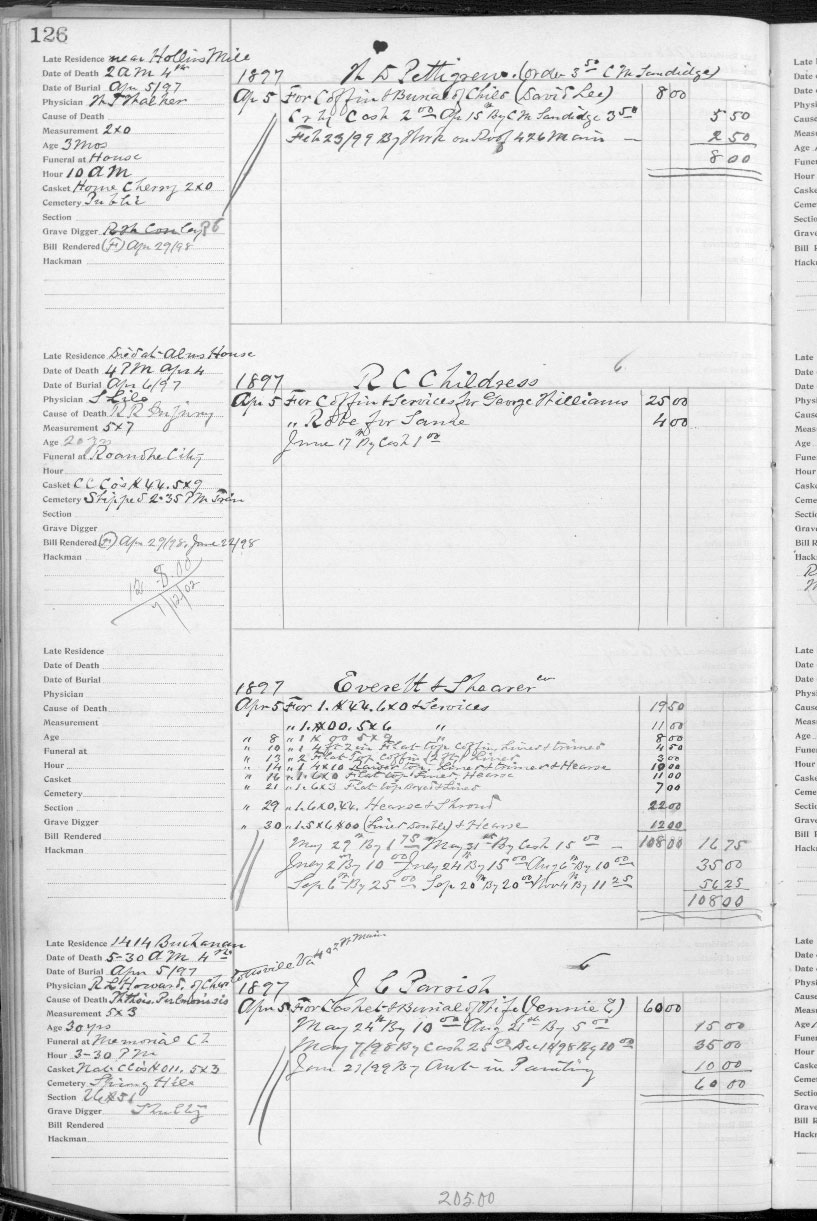 126
Late Residence near Hollins Mill
Date of Death 2 am 4th
Date of Burial Apr 5/97
Physician W T Walker
Cause of Death
Measurement 2x0
Age 3 mos
Funeral at House
Hour 10 am
Casket Home Cherry 2x0
Cemetery Public
Section
Grave Digger
Bill Rendered (Fr) Apr 29/98
Hackman
1897 W D Pettigrew. (order 3 50 C M Sandidge)
Ap 5 For Coffin & Burial of Child (David Lee) 8 00
Cr by Cash 2 00 Ap 15th By C M Sandidge 3 50 5 50
Feb 23/99 By Work on Roof 426 Main — 2 50
8 00
Late Residence Died at Alms House
Date of Death 4 PM Apr 4
Date of Burial Apr 6/97
Physician S Lile
Cause of Death R R Injury
Measurement 5x7
Age 20 yrs
Funeral at Roanoke City
Hour
Casket C C Co's # 44. 5x9
Cemetery Shipped 2-35 PM Train
Section
Grave Digger
Bill Rendered (Fr) Apr 29/98, June 22/98
Hackman
8.00
7/12/02
6
1897 R C Childress
Apr 5 For Coffin & Services for George Williams 25 00
" Robe for Same 4 00
June 17th By Cash 1 00
Late Residence
Date of Death
Date of Burial
Physician
Cause of Death
Measurement
Age
Funeral at
Hour
Casket
Cemetery
Section
Grave Digger
Bill Rendered
Hackman
1897 Everett & Shearer
Apr 5 For 1. #44. 6x0 & Services 19 50
" 1. #00. 5x6 " 11 00
" 8 " 1 # 00 5x9 " 8 00
" 10 " 1 4 ft 2 in Flat top Coffin Lined & trimed 4 50
" 13 " 2 Flat Top Coffins Lined 3 00
" 14 " 1 4x10 Lined & trimed & Hearse 10 00
" 16 " 1. 6x0 Flat top Lined, Hearse 11 00
" 21 " 1. 6x3 Flat top Lined 7 00
" 29 " 1. 6x0. 44. Hearse & Shroud 22 00
" 30 " 1. 5x6 #00 (Lined Double) & Hearse 12 00
May 29th By 1 75 May 31st By Cash 15 00 — 108 00 16 75
July 2nd By 10 00 July 24th By 15 00 Aug 6th By 10 00 35 00
Sep 6th By 25 00 Sep 20th By 20 00 Nov 4th By 11 25 56 25
108 00
Late Residence 1414 Buchanan
Date of Death 5-30 am 4th
Date of Burial Apr 5/97
Physician R L Howard, of Charlottesville Va 4 on N Main
Cause of Death Pthisis Pulmonisis
Measurement 5x3
Age 30 yrs
Funeral at Memorial Ch
Hour 3-30 PM
Casket Nat. C Co's # 011. 5x3
Cemetery Spring Hill
Section
Grave Digger Shultz
Bill Rendered
Hackman
6
1897 J C Parrish
Apr 5 For Casket & Burial of Wife (Jennie E) 60 00
May 24th By 10 00 Aug 21st By 5 00 15 00
May 7/98 By Cash 25 00 Dec 14/98 By 10 00 35 00
June 27/99 By Amt in Painting 10 00
60 00
205.00
Late
Date
Date
Physi
Caus
Meas
Age
Fune
Hour
Cask
Ceme
Secti
Grav
Bill R
Hack